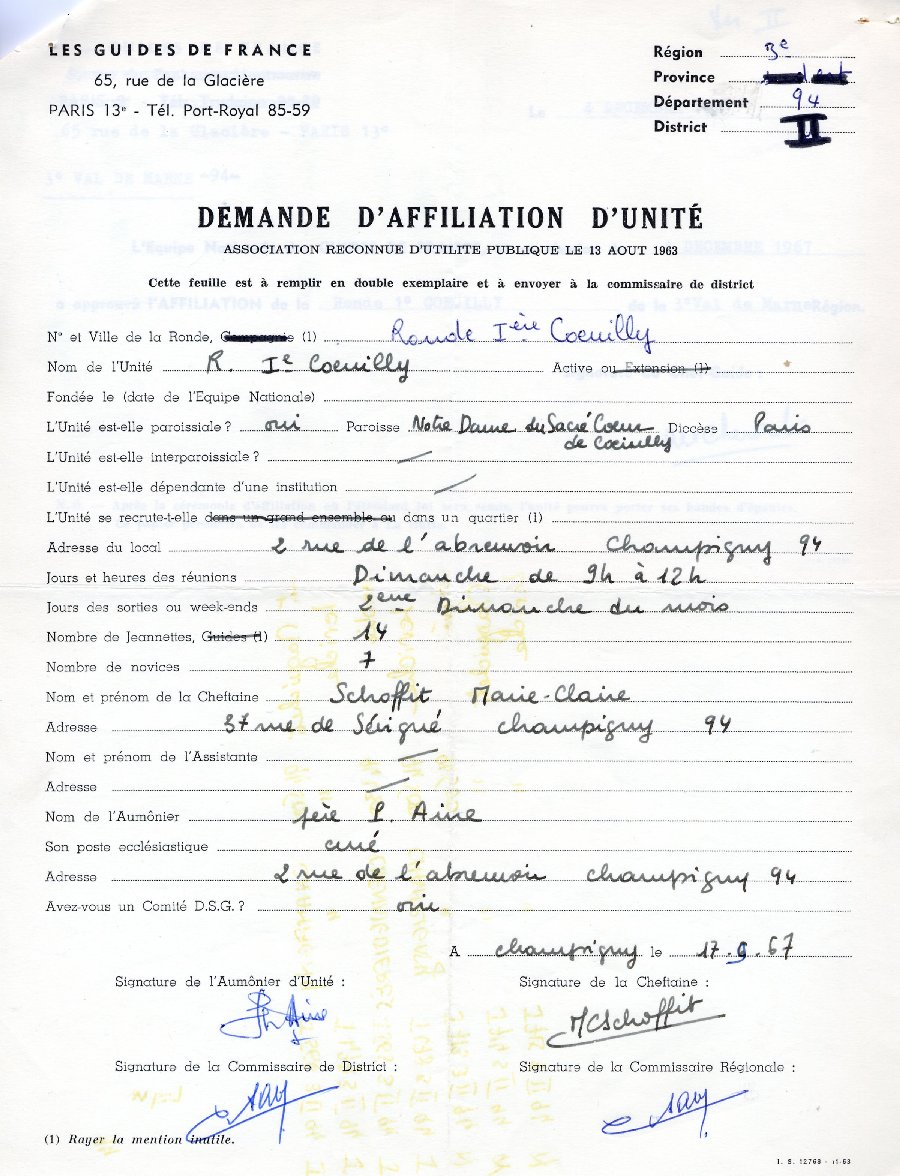 LES GUIDES DE FRANCE
65, rue de la Glacière
PARIS 13e - Tél. Port-Royal 85-59
Région 3e
Province
Département 94
District II
DEMANDE D'AFFILIATION D'UNITÉ
ASSOCIATION RECONNUE D'UTILITE PUBLIQUE LE 13 AOUT 1963
Cette feuille est à remplir en double exemplaire et à envoyer à la commissaire de district
N° et Ville de la Ronde, Compagnie (1) Ronde Ière Coeuilly
Nom de l'Unité R. Ie Coeuilly Active ou Extension (1)
Fondée le (date de l'Equipe Nationale)
L'Unité est-elle paroissiale ? oui Paroisse Notre Dame du Sacré Coeur de Coeuilly Diocèse Paris
L'Unité est-elle interparoissiale ?
L'Unité est-elle dépendante d'une institution
L'Unité se recrute-t-elle dans un grand ensemble ou dans un quartier (1)
Adresse du local 2 rue de l'abreuvoir Champigny 94
Jours et heures des réunions Dimanche de 9h à 12h
Jours des sorties ou week-ends 2ème Dimanche du mois
Nombre de Jeannettes, Guides (1) 14
Nombre de novices 7
Nom et prénom de la Cheftaine Schoffit Marie-Claire
Adresse 37 rue de Sévigné champigny 94
Nom et prénom de l'Assistante
Adresse
Nom de l'Aumônier père P. Aine
Son poste ecclésiastique curé
Adresse 2 rue de l'abreuvoir champigny 94
Avez-vous un Comité D.S.G. ? oui
A champigny le 17.9.67
Signature de l'Aumônier d'Unité :
Signature de la Cheftaine :
MCSchoffit
Signature de la Commissaire de District :
Signature de la Commissaire Régionale :
(1) Rayer la mention inutile.
I. S. 12768 - 11-63